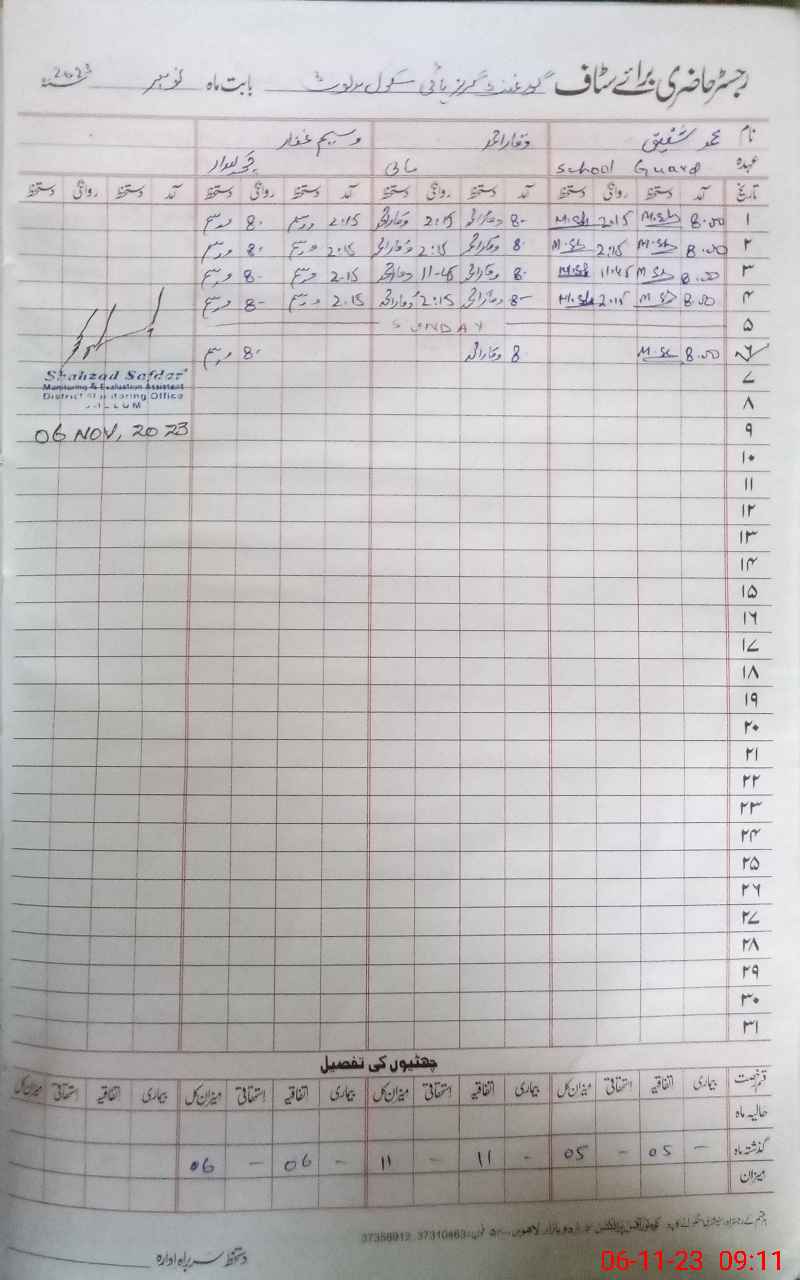 رجسٹر حاضری برائے سٹاف گورنمنٹ گرلز ہائی سکول بابت ماہ نومبر سنہ 2023
نام محمد شفیق وقار احمد وسیم غفار
عہدہ School Guard مالی چوکیدار
تاریخ آمد دستخط روانگی دستخط آمد دستخط روانگی دستخط آمد دستخط روانگی دستخط آمد دستخط روانگی دستخط
۱ 8.00 M.Sh 2:15 M.Sh 8- وقار احمد 2:15 وقار احمد 2:15 وسیم 8- وسیم
۲ 8.00 M.Sh 2:15 M.Sh 8- وقار احمد 2:15 وقار احمد 2:15 وسیم 8- وسیم
۳ 8.00 M.Sh 11:45 M.Sh 8- وقار احمد 11-45 وقار احمد 2.15 وسیم 8- وسیم
۴ 8.00 M.Sh 2:15 M.Sh 8- وقار احمد 2:15 وقار احمد 2.15 وسیم 8- وسیم
۵ SUNDAY
۶ 8.00 M.Sh 8 وقار احمد 8- وسیم
Shahzad Safdar
Monitoring & Evaluation Assistant
District Monitoring Office
JHELUM
۷
۸
۹ 06 NOV, 2023
۱۰
۱۱
۱۲
۱۳
۱۴
۱۵
۱۶
۱۷
۱۸
۱۹
۲۰
۲۱
۲۲
۲۳
۲۴
۲۵
۲۶
۲۷
۲۸
۲۹
۳۰
۳۱
چھٹیوں کی تفصیل
قسم رخصت بیماری اتفاقیہ استحقاقی میزان کل بیماری اتفاقیہ استحقاقی میزان کل بیماری اتفاقیہ استحقاقی میزان کل بیماری اتفاقیہ استحقاقی میزان کل
حالیہ ماہ
گذشتہ ماہ - 05 - 05 - 11 - 11 - 06 - 06
میزان
اردو بازار لاہور فون: 37310463, 37356912
دستخط سربراہ ادارہ
06-11-23 09:11